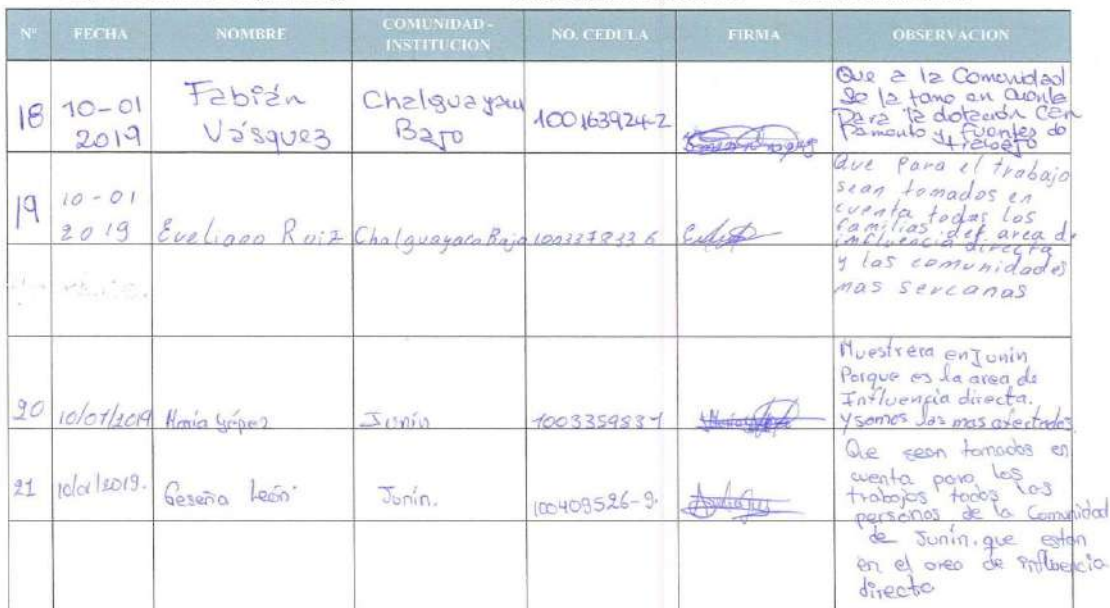 Nº FECHA NOMBRE COMUNIDAD - INSTITUCION NO. CEDULA FIRMA OBSERVACION
18 10-01 2019 Fabián Vásquez Chalguayacu Bajo 100163924-2
Que a la Comunidad
Se la tome en cuenta
Para la dotación Cam
Pamento y fuentes de
trabajo
19 10-01 2019 Eveliano Ruiz Chalguayaco Bajo 100337833 6
Que Para el trabajo
sean tomados en
cuenta todas las
familias del area de
influencia directa
y las comunidades
mas sercanas
20 10/01/2019 María Yépez Junín 1003359831
Muestrera en Junín
Porque es la area de
Influencia directa.
Y somos los mas afectados
21 10/01/2019. Geseña León Junín. 100409526-9.
Que sean tomados en
cuenta para los
trabajos todos las
personas de la Comunidad
de Junín. que estan
en el area de influencia
directa